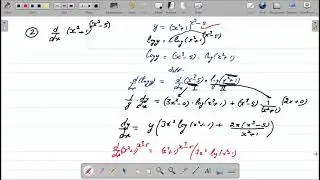 ② d/dx (x²+1)^(x³-5)
y = (x²+1)^(x³-5)
log y = log (x²+1)^(x³-5)
log y = (x³-5) · log (x²+1)
diff.
d/dx (log y) = d/dx (x³-5) · log (x²+1)
1/y · dy/dx = (3x²-0) · log (x²+1) + (x³-5) · 1/(x²+1) (2x+0)
dy/dx = y ( 3x² log (x²+1) + 2x(x³-5)/(x²+1) )
d/dx (x²+1)^(x³-5) = (x²+1)^(x³-5) ( 3x² log (x²+1)